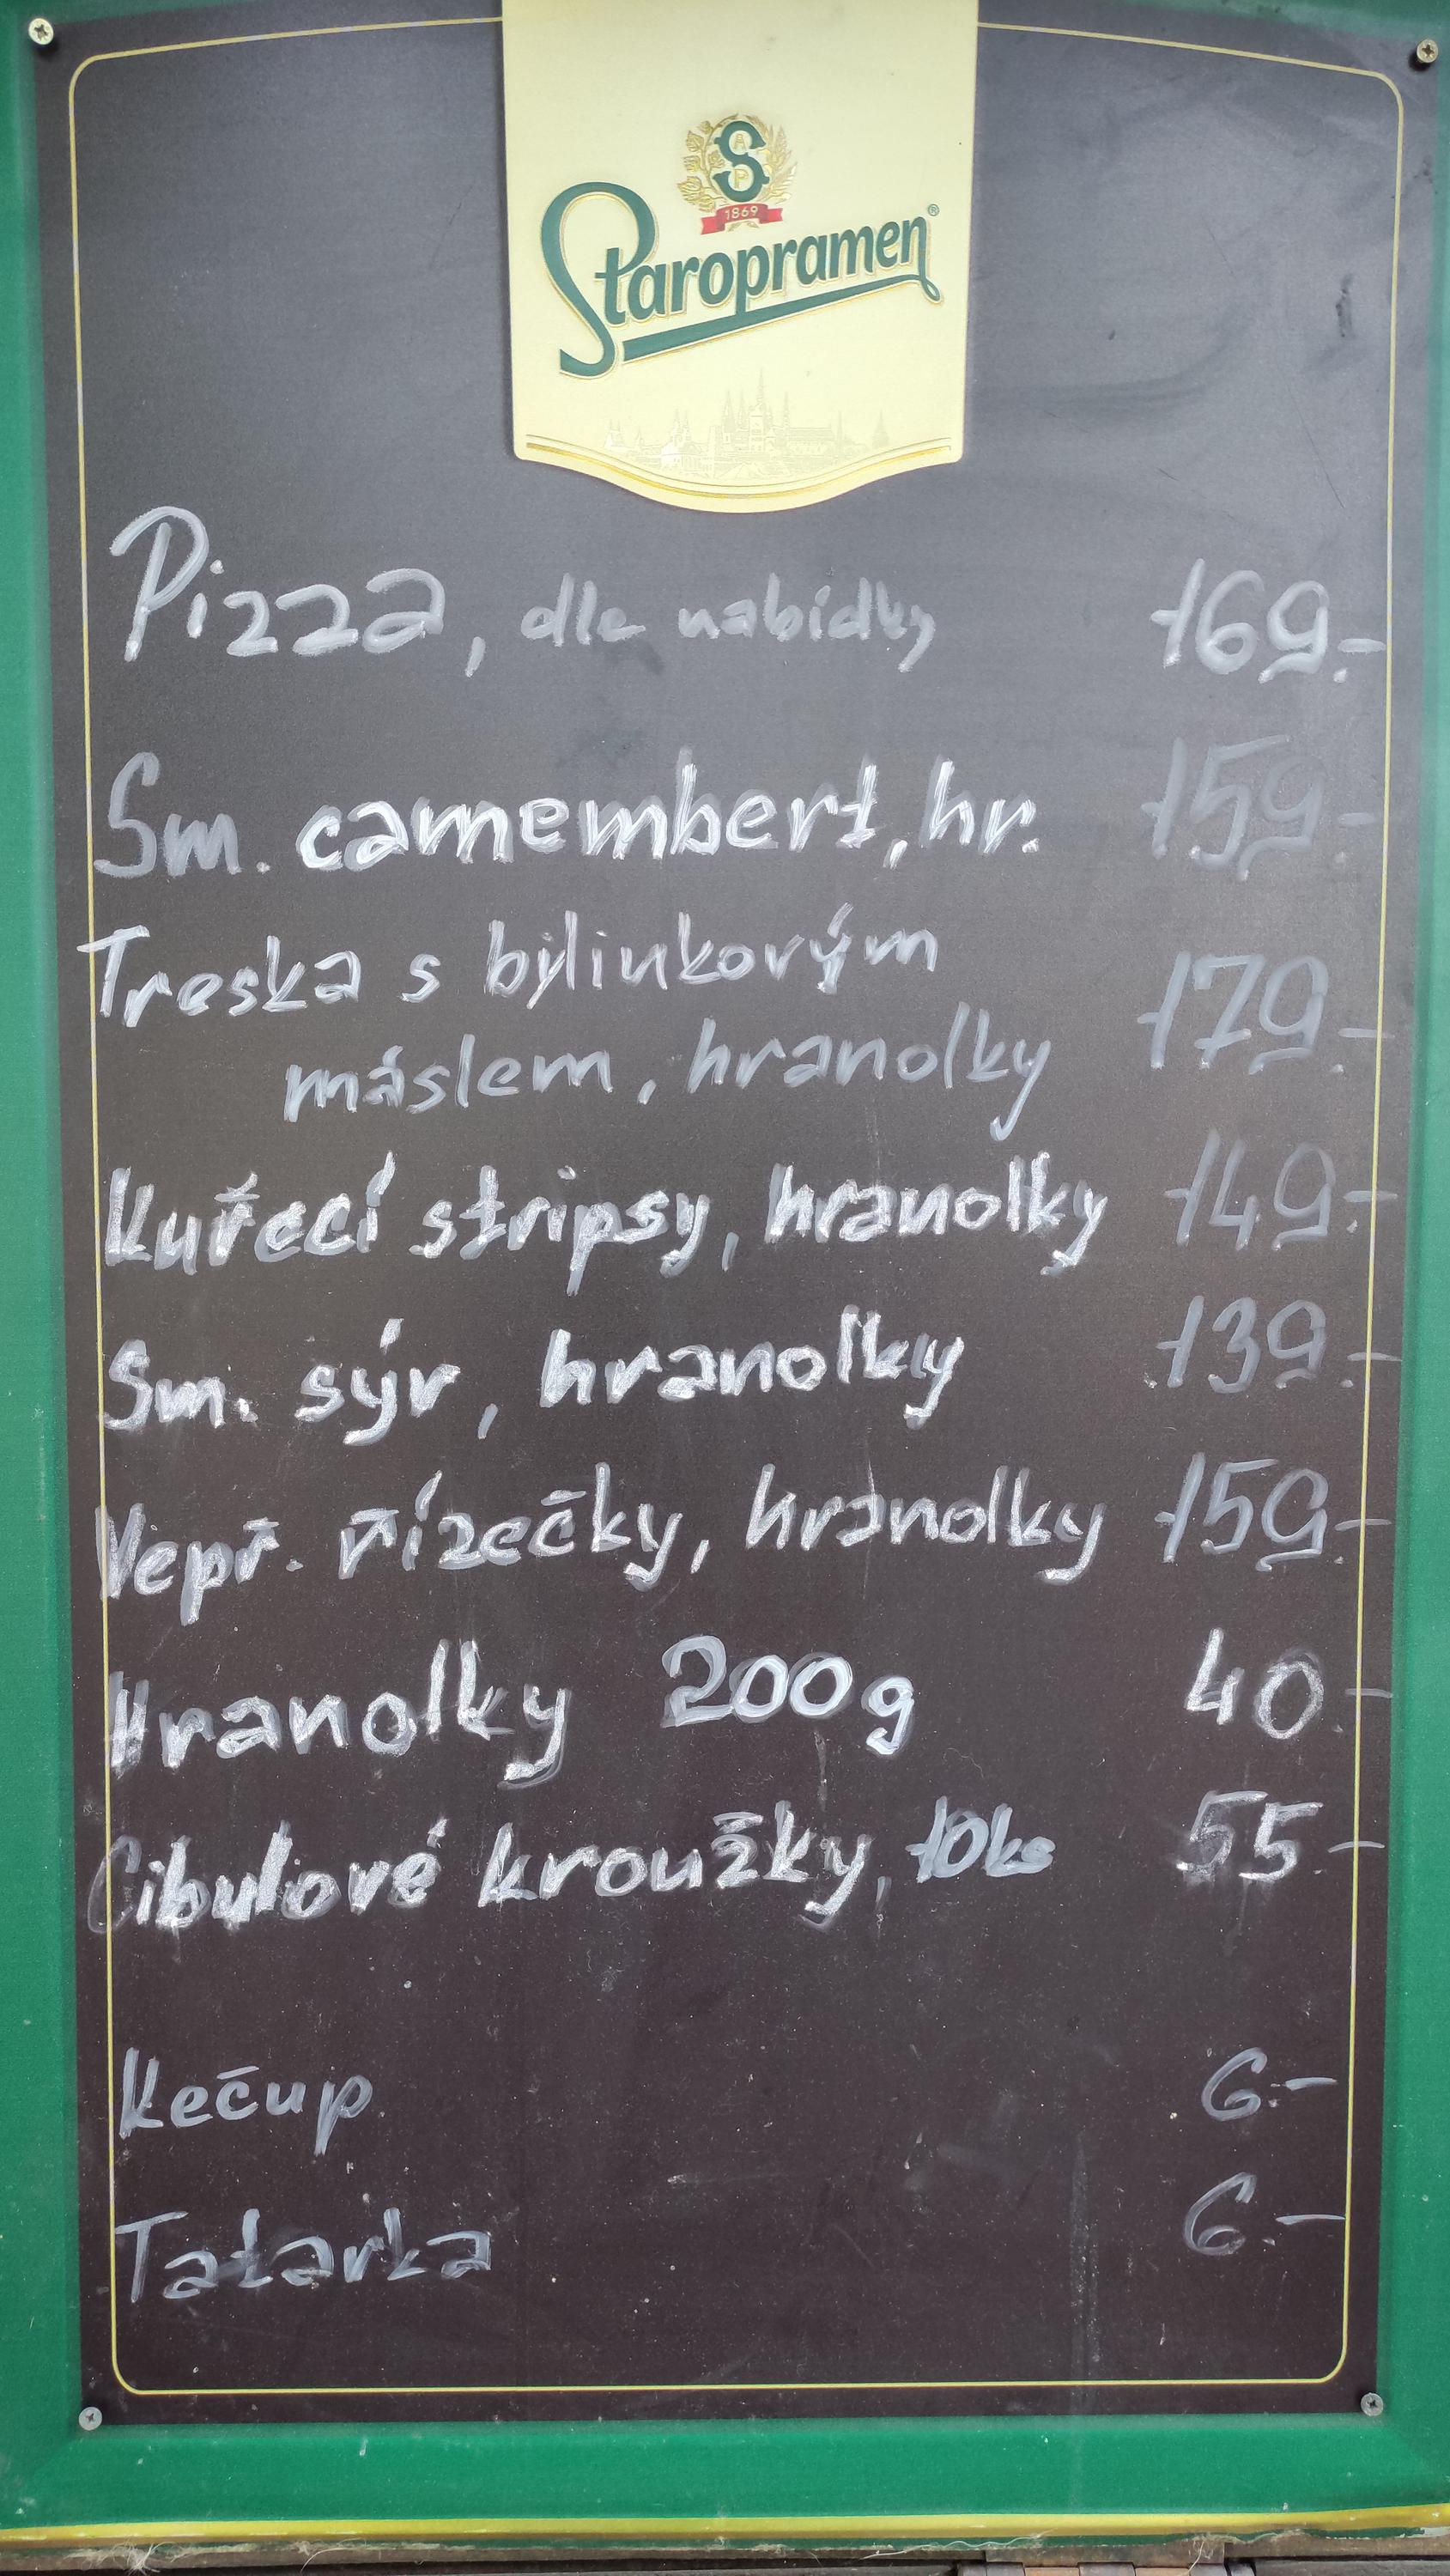 S
A
P
1869
Staropramen®
Pizza, dle nabídky 169.-
Sm. camembert, hr. 159.-
Treska s bylinkovým
máslem, hranolky 179.-
Kuřecí stripsy, hranolky 149.-
Sm. sýr, hranolky 139.-
Vepř. řízečky, hranolky 159.-
Hranolky 200g 40.-
Cibulové kroužky, 10ks 55.-
Kečup 6.-
Tatarka 6.-